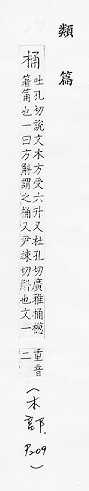 類篇
桶
吐孔切說文木方受六升又杜孔切廣雅桶檧
箸筩也一曰方斛謂之桶又尹竦切斛也文一
重音
二
(木部.
P209
)